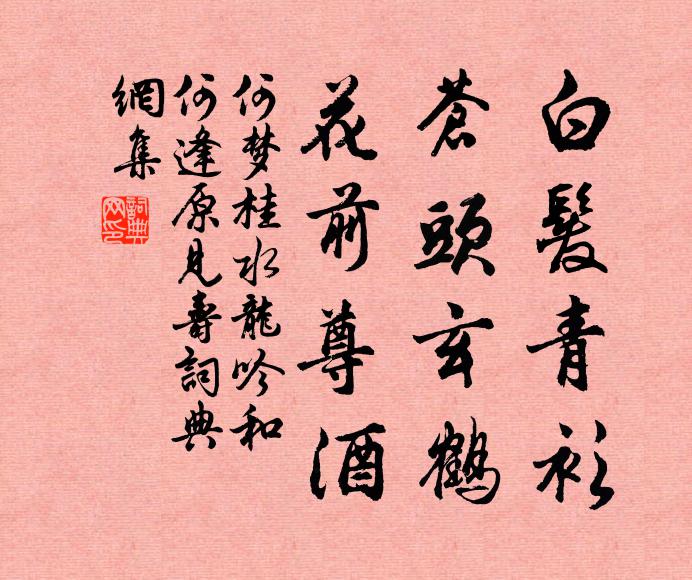 白髮青衫
蒼頭玄鶴
花前尊酒
何梦桂水龍吟和
何逢原見壽詞典
網集
詞典
网印